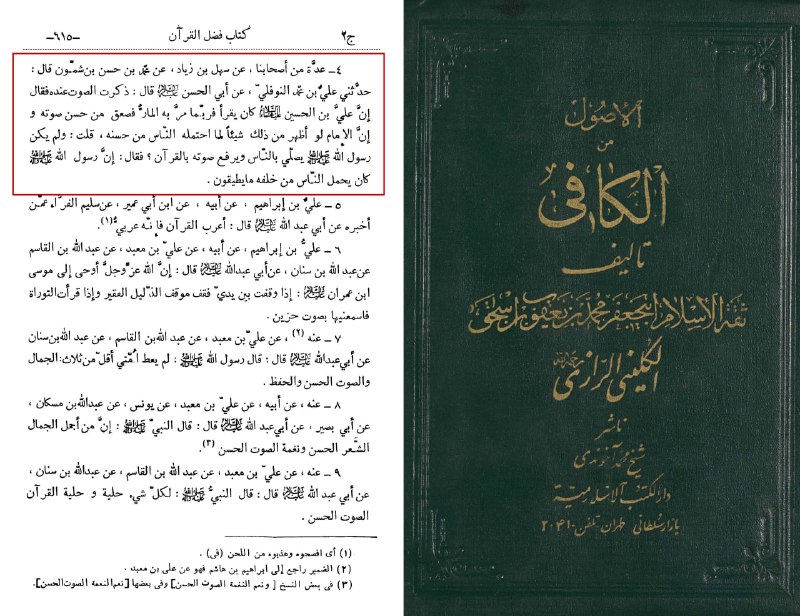 ج٢ كتاب فضل القرآن ـ٦١٥ـ
٤ ـ عدَّة من أصحابنا ، عن سهل بن زياد ، عن محمّد بن حسن بن شمّون قال :
حدَّثني عليُّ بن محمّد النوفليّ ، عن أبي الحسن عليه السلام قال : ذكرت الصوت عنده فقال
إنَّ عليَّ بن الحسين عليهما السلام كان يقرأ فربّما مرَّ به المارُّ فصعق من حسن صوته و
إنَّ الإمام لو أظهر من ذلك شيئاً لما احتمله النّاس من حسنه ، قلت : ولم يكن
رسول الله ﷺ يصلّي بالنّاس ويرفع صوته بالقرآن ؟ فقال : إنَّ رسول الله ﷺ
كان يحمل النّاس من خلفه ما يطيقون .
٥ ـ عليُّ بن إبراهيم ، عن أبيه ، عن ابن أبي عمير ، عن سليم الفرَّاء عمّن
أخبره عن أبي عبد الله عليه السلام قال : أعرب القرآن فإنّه عربيٌّ (١).
٦ ـ عليُّ بن إبراهيم ، عن أبيه ، عن عليّ بن معبد ، عن عبدالله بن القاسم
عن عبدالله بن سنان ، عن أبي عبدالله عليه السلام قال : إنَّ الله عزَّ وجلَّ أوحى إلى موسى
ابن عمران عليه السلام : إذا وقفت بين يديَّ فقف موقف الذَّليل الفقير وإذا قرأت التوراة
فاسمعنيها بصوت حزين .
٧ ـ عنه (٢) ، عن عليّ بن معبد ، عن عبدالله بن القاسم ، عن عبدالله بن سنان
عن أبي عبدالله عليه السلام قال : قال رسول الله ﷺ : لم يعط اُمّتي أقلّ من ثلاث : الجمال
والصوت الحسن والحفظ .
٨ ـ عنه ، عن أبيه ، عن عليّ بن معبد ، عن يونس ، عن عبدالله بن مسكان ،
عن أبي بصير ، عن أبي عبدالله عليه السلام قال : قال النبيُّ ﷺ : إنَّ من أجمل الجمال
الشَّعر الحسن ونغمة الصوت الحسن (٣).
٩ ـ عنه ، عن عليّ بن معبد ، عن عبد الله بن القاسم ، عن عبدالله بن سنان ،
عن أبي عبد الله عليه السلام قال : قال النبيُّ ﷺ : لكلّ شيء حلية و حلية القرآن
الصوت الحسن .
(١) أى افصحوه وهذبوه من اللحن (فى) .
(٢) الضمير راجع إلى ابراهيم بن هاشم فهو عن على بن معبد .
(٣) فى بعض النسخ [ ونعم النغمة الصوت الحسن ] وفى بعضها [نعم النغمة الصوت الحسن].
الاصول
من
الكافي
تأليف
ثقة الاسلام ابي جعفر محمد بن يعقوب بن اسحق
الكليني الرازي
ناشر
شيخ محمد آخوندى
دار الكتب الاسلامية
بازار سلطانى طهران تلفن ٢٠٤١٠